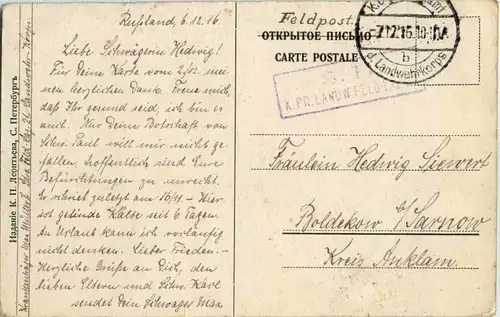 Rußland, 6.12.16
Liebe Schwägerin Hedwig!
Für Deine Karte vom 2/12. mei-
nen herzlichen Dank. Freue mich,
daß Ihr gesund seid, ich bin es
auch. Nur Deine Botschaft von
Schw. Paul will mir nicht ge-
fallen, hoffentlich sind Eure
Befürchtungen zu unrecht.
Er schrieb zuletzt am 16/11. – Hier
ist gelinde Kälte seit 6 Tagen.
An Urlaub kann ich vorläufig
nicht denken. Lieber Frieden. –
Herzliche Grüße an Dich, den
lieben Eltern und Schw. Karl
sendet Dein Schwager Max
Изданіе К. П. Леонтьева, С. Петербургъ
Krankenträger Max
Landwehr-Korps
Feldpost.
ОТКРЫТОЕ ПИСЬМО
CARTE POSTALE
d. Landwehrkorps
b
K. PR. LANDW. FELD
Fräulein Hedwig Siewert
Boldekow b/Sarnow
Kreis Anklam.